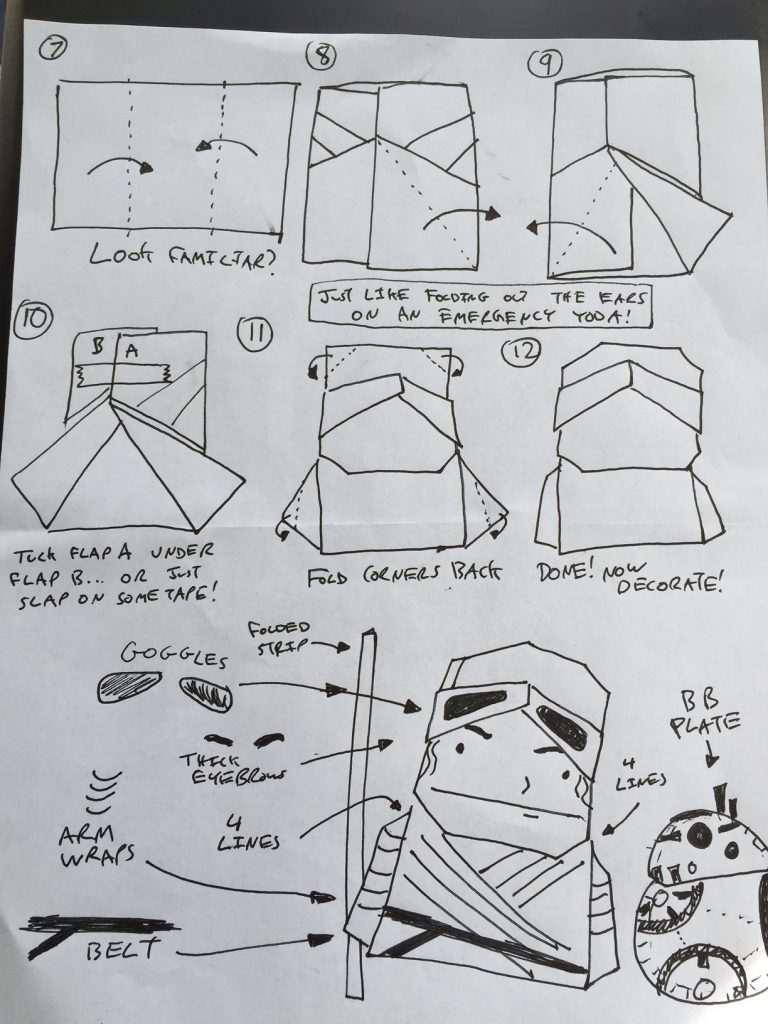 7
8
9
LOOK FAMILIAR?
JUST LIKE FOLDING OUT THE EARS
ON AN EMERGENCY YODA!
10
11
12
B A
TUCK FLAP A UNDER
FLAP B... OR JUST
SLAP ON SOME TAPE!
FOLD CORNERS BACK
DONE! NOW
DECORATE!
GOGGLES
FOLDED
STRIP
THICK
EYEBROWS
BB
PLATE
4
LINES
4
LINES
ARM
WRAPS
BELT